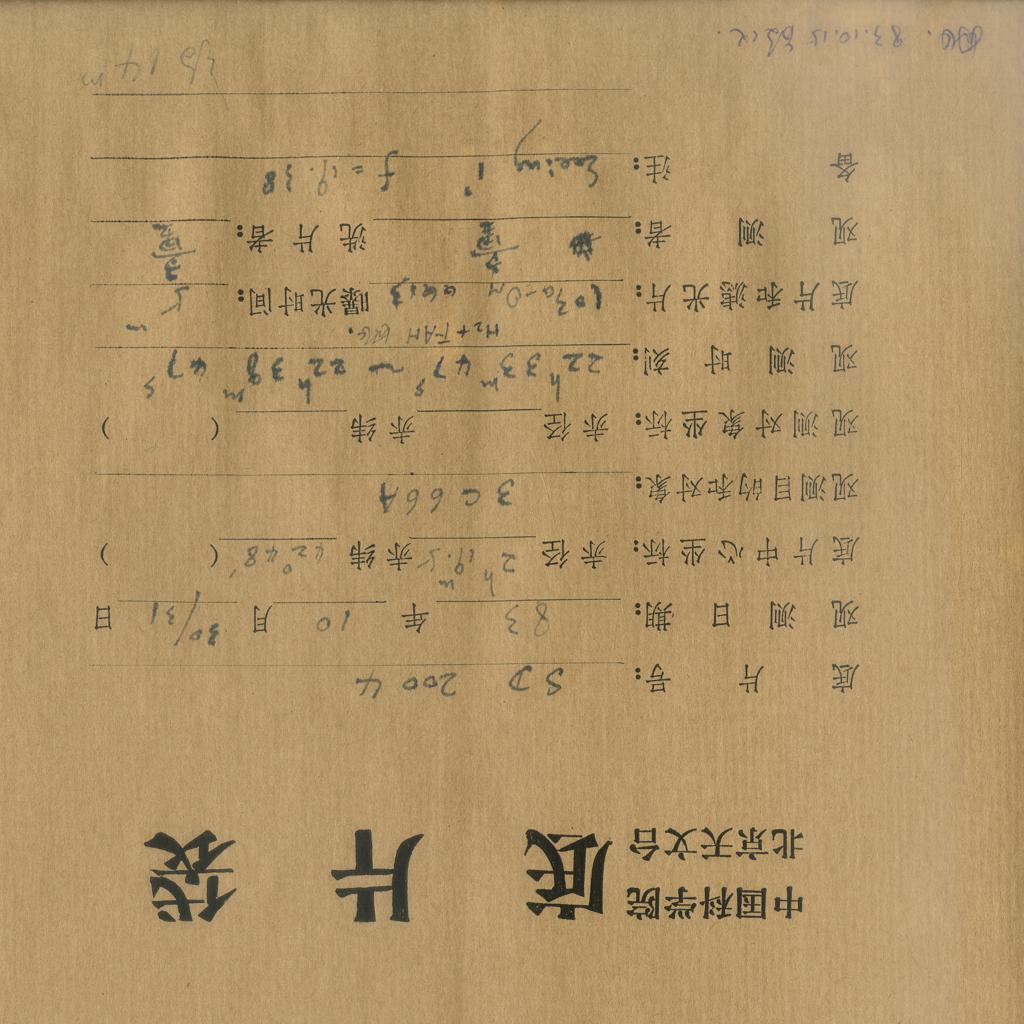 中国科学院
北京天文台
底片袋
底片号: SD 2004
观测日期: 83 年 10 月 30/31 日
底片中心坐标: 赤径 2h 19m.5 赤纬 42°48′ ( )
观测目的和对象: 3C66A
观测对象坐标: 赤径 赤纬 ( )
观测时刻: 22h33m47s ~ 22h38m47s
H2+FAH
底片和滤光片: 103a-O 曝光时间: 5m
观测者: 洗片者:
备注: Seeing f=19.38
14m
83.10.15